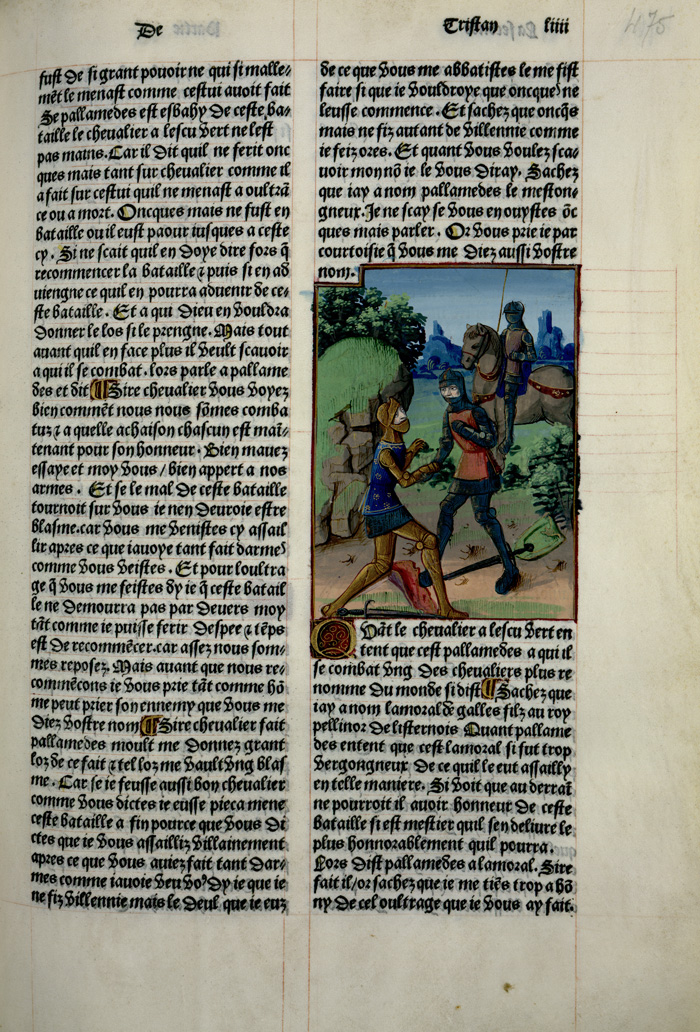 De
Tristan liiii
475
fust de si grant pouoir ne qui si malle-
mēt le menast comme cestui auoit fait
Se pallamedes est esbahy de ceste ba-
taille le cheualier a lescu vert ne lest
pas mains. Car il dit quil ne ferit onc
ques mais tant sur cheualier comme il
a fait sur cestui quil ne menast a oultrā
ce ou a mort. Oncques mais ne fust en
bataille ou il eust paour iusques a ceste
cy. Si ne scait quil en doye dire fors q̄
recommencer la bataille ⁊ puis si en ad
uiengne ce quil en pourra aduenir de ce-
ste bataille. Et a qui dieu en vouldra
donner le los si le prengne. Mais tout
auant quil en face plus il veult scauoir
a qui il se combat. lors parle a pallame
des et dit ¶ Sire cheualier vous voyez
bien commēt nous nous sōmes comba
tuz ⁊ a quelle achaison chascun est mai-
tenant pour son honneur. Bien mauez
essaye et moy vous / bien appert a nos
armes. Et se le mal de ceste bataille
tournoit sur vous ie nen deuroie estre
blasme. car vous me venistes cy assail
lir apres ce que iauoye tant fait darmes
comme vous veistes. Et pour loultra
ge q̄ vous me feistes dy ie q̄ ceste batail
le ne demourra pas par deuers moy
tāt comme ie puisse ferir despee ⁊ tēps
est de recommēcer. car assez nous som-
mes reposez. Mais auant que nous re-
commēcons ie vous prie tāt comme hō
me peut prier son ennemy que vous me
diez vostre nom ¶ Sire cheualier fait
pallamedes moult me donnez grant
loz de ce fait ⁊ tel loz me vault vng blas
me. Car se ie feusse aussi bon cheualier
comme vous dictes ie eusse pieca mene
ceste bataille a fin pource que vous di
ctes que ie vous assailliz villainement
apres ce que vous auiez fait tant dar-
mes comme iauoie veu voꝰ dy ie que ie
ne fiz villennie mais le deul que ie euz
de ce que vous me abbatistes le me fist
faire si que ie vouldroye que oncque ne
leusse commence. Et sachez que oncq̄s
mais ne fiz autant de villennie comme
ie feiz ores. Et quant vous voulez sca-
uoir mon nō ie le vous diray. Sachez
que iay a nom pallamedes le mescon-
gneux. Je ne scay se vous en ouystes ōc
ques mais parler. Or vous prie ie par
courtoisie q̄ vous me diez aussi vostre
nom.
Quāt le cheualier a lescu vert en
tent que cest pallamedes a qui il
se combat vng des cheualiers plus re
nomme du monde si dist ¶ Sachez que
iay a nom lamoral de galles filz au roy
pellinor de listernois Quant pallame
des entent que cest lamoral si fut trop
vergongneux de ce quil le eut assailly
en telle maniere. Si voit que au derraī
ne pourroit il auoir honneur de ceste
bataille si est mestier quil sen deliure le
plus honnorablement quil pourra.
Lors dist pallamedes a lamoral. Sire
fait il / or sachez que ie me tiēs trop a hō
ny de cel oultrage que ie vous ay fait.